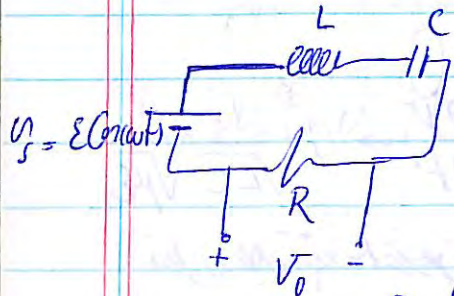 L C
V_s = ℰ Cos(ωt)
R
+ V_0 -